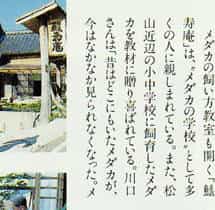 メダカの飼い方教室も開く「鯖
寿庵」は、“メダカの学校”として多
くの人に親しまれている。また、松
山近辺の小中学校に飼育したメダ
カを教材に贈り喜ばれている。川口
さんは「昔はどこにもいたメダカが、
今はなかなか見られなくなった。メ